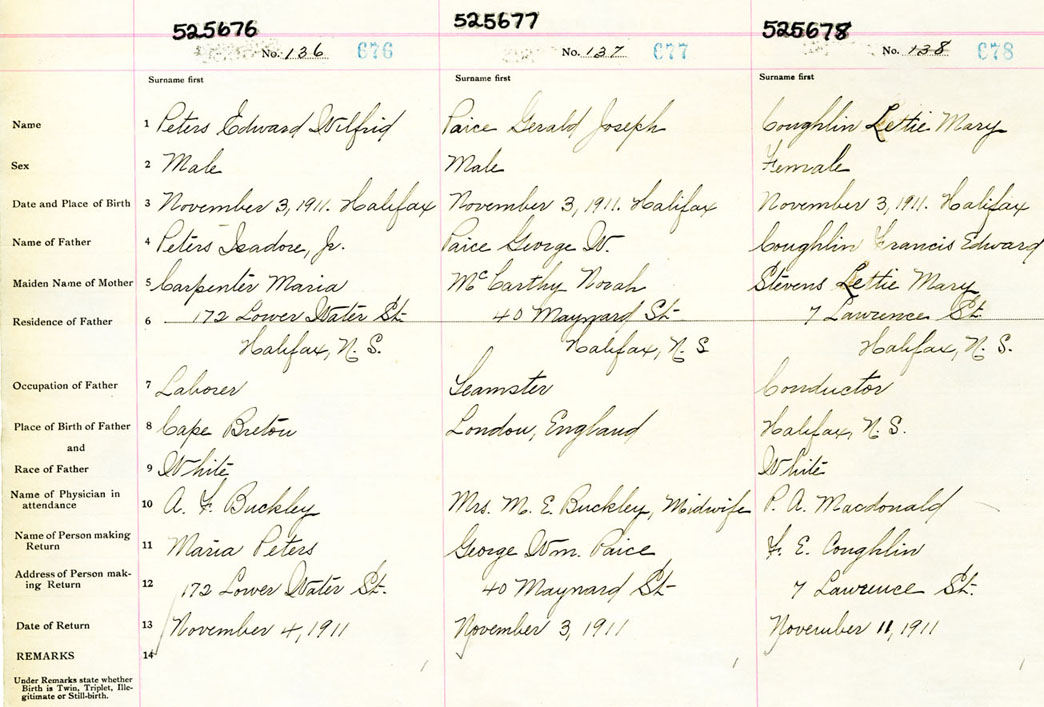 525676 525677 525678
No. 136 676 No. 137 677 No. 138 678
Surname first Surname first Surname first
Name 1 Peters Edward Wilfrid Paice Gerald Joseph Coughlin Lettie Mary
Sex 2 Male Male Female
Date and Place of Birth 3 November 3, 1911. Halifax November 3, 1911. Halifax November 3, 1911. Halifax
Name of Father 4 Peters Isadore, Jr. Paice George W. Coughlin Francis Edward
Maiden Name of Mother 5 Carpenter Maria McCarthy Norah Stevens Lettie Mary
Residence of Father 6 172 Lower Water St. 40 Maynard St. 7 Lawrence St.
Halifax, N.S. Halifax, N.S Halifax, N.S.
Occupation of Father 7 Laborer Teamster Conductor
Place of Birth of Father 8 Cape Breton London, England Halifax, N.S.
and
Race of Father 9 White White
Name of Physician in
attendance 10 A. F. Buckley Mrs. M. E. Buckley, Midwife P. A. Macdonald
Name of Person making
Return 11 Maria Peters George Wm. Paice F. E. Coughlin
Address of Person mak-
ing Return 12 172 Lower Water St. 40 Maynard St. 7 Lawrence St.
Date of Return 13 November 4, 1911 November 3, 1911 November 11, 1911
REMARKS 14
Under Remarks state whether
Birth is Twin, Triplet, Ille-
gitimate or Still-birth.